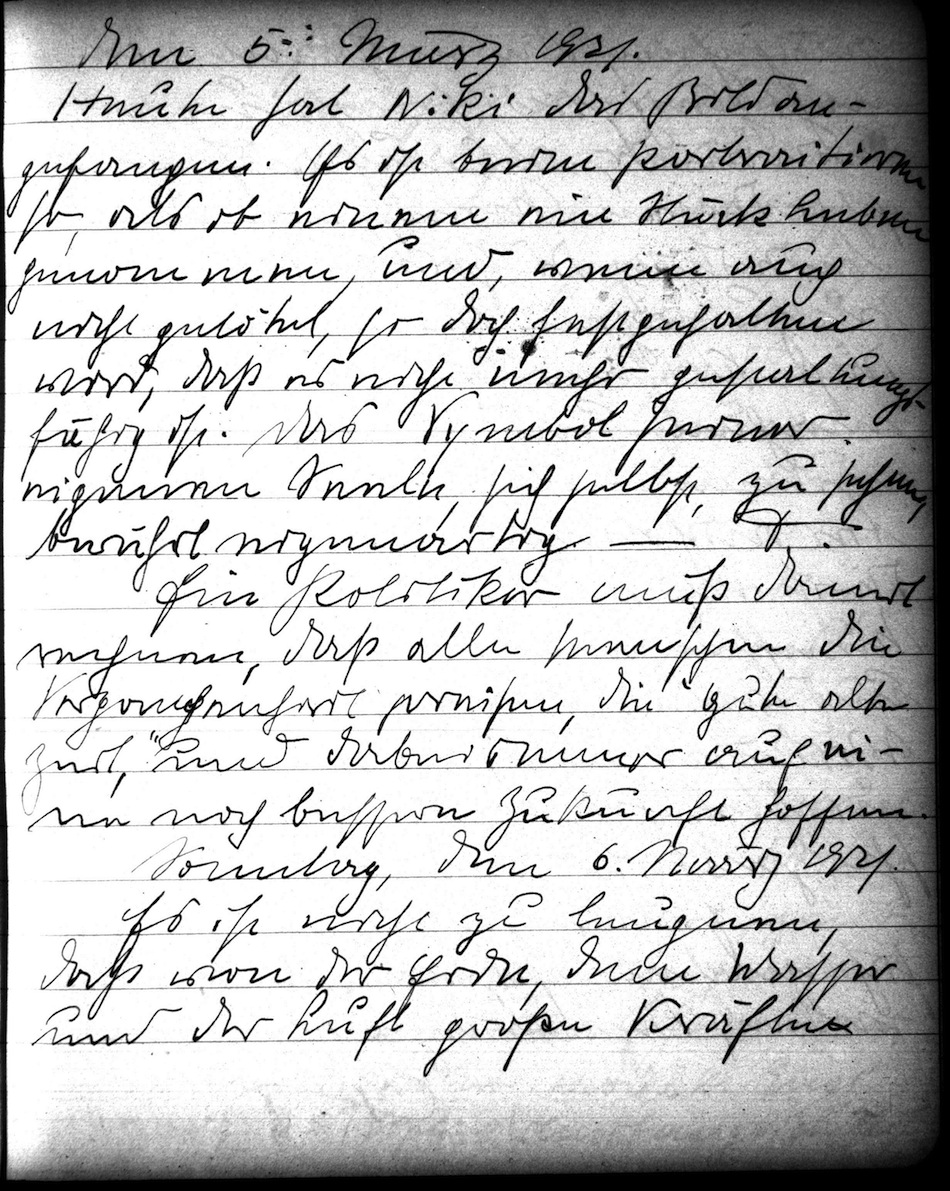 Den 5. März 1921.
Heute hat Niki das Bild an-
gefangen. Es ist beim Portraitieren
so, als ob einem ein Stück Leben
genommen, und, wenn auch
nicht getötet, so doch festgehalten
wird, daß es nicht mehr gestaltungs-
fähig ist. Das Symbol seiner
eigenen Seele, sich selbst, zu sehen,
berührt eigenartig. —
Ein Politiker muß damit
rechnen, daß alle Menschen die
Vergangenheit preisen, die "gute alte
Zeit," und dabei immer auf ei-
ne noch bessere Zukunft hoffen.
Sonntag, den 6. März 1921.
Es ist nicht zu leugnen,
daß von der Erde, dem Wasser
und der Luft große Kräfte